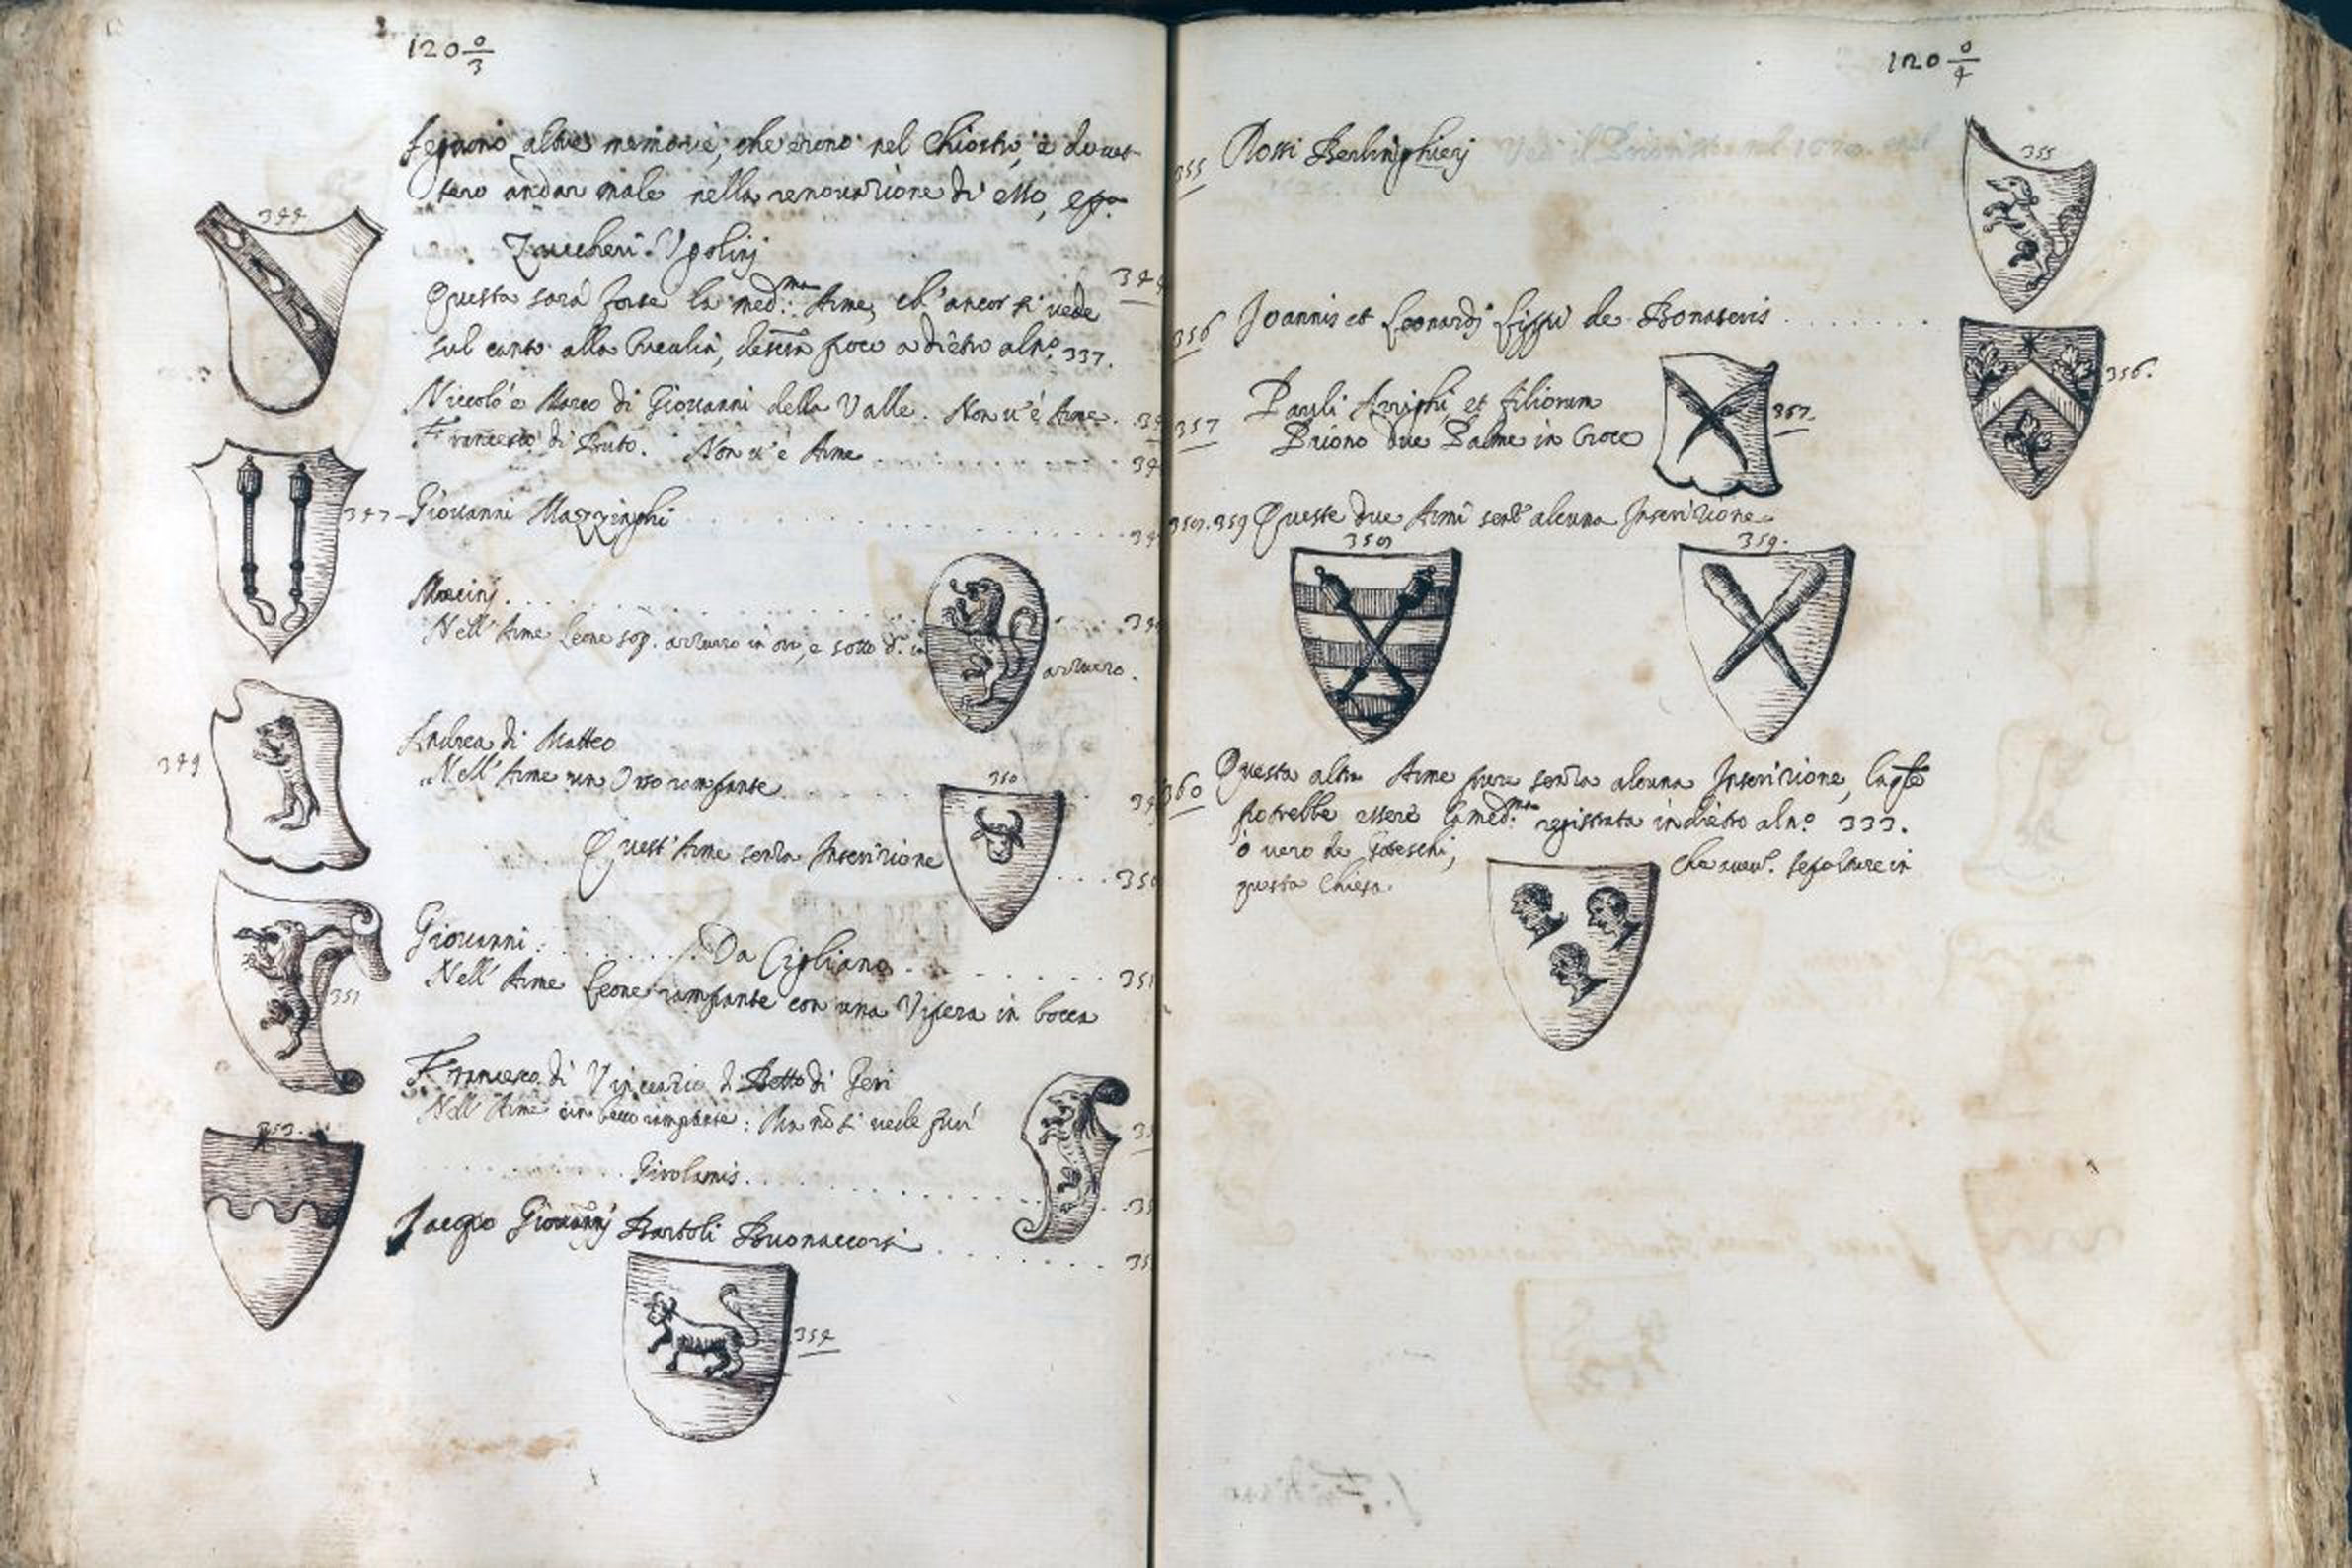 120 0/3
Seguono altre memorie, che erono nel Chiostro, e dovet-
tero andar male nella renovazione di esso, e pa
344
Zuccheri. Vgolinj
344
Questa sarà forse la med:ma Arme, ch'ancor si vede
sul canto alla Cuculia, descta poco a dietro al no. 337.
Niccolò e Marco di Giovanni della Valle. Non v'è Arme. 34
Francesco di Buto. Non v'è Arme 34
347 Giovanni Mazzinghi 34
Macinj. 34
Nell'Arme Leone sop. azzurro in oro, e sotto d. in
azzurro.
Andrea di Matteo
349 Nell'Arme un Orso rampante 34
350
Quest'Arme senza Inscrizione
350
Giovanni: Da Cigliano 351
Nell'Arme Leone rampante con una Vipera in bocca
351
Francesco di Vincenzio di Betto di Geri
Nell'Arme un becco rampante: Ma nō si vede più 35
353.
Girolamis. 35
Jacopo Giovannj Bartoli Buonaccorsi 35
354
120 0/4
355 Rossi Berlinghierj
355
356 Joannis et Leonardj Lippi de Bonaseris
356.
357 Pauli Arrighi et filiorum
Puono due Palme in Croce
357.
358.359 Queste due Armi senz'alcuna Inscrizione
358 359.
360 Questa altra Arme pure senza alcuna Inscrizione, la qle
potrebbe essere la med:ma registrata indietro al no. 333.
ò vero de
che avev. sepolture in
questa Chiesa.